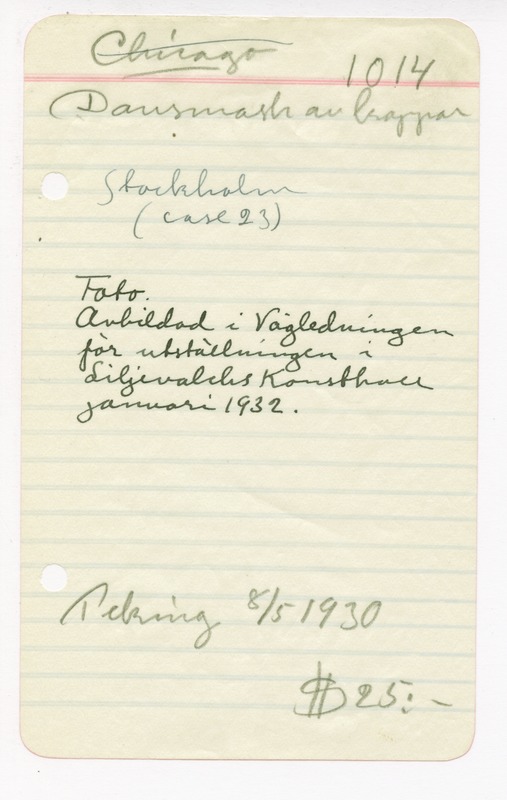 Chicago
1014
Dansmask av koppar
Stockholm
(case 23)
Foto.
Avbildad i Vägledningen
för utställningen i
Liljevalchs Konsthall
januari 1932.
Peking 8/5 1930
$ 25:-